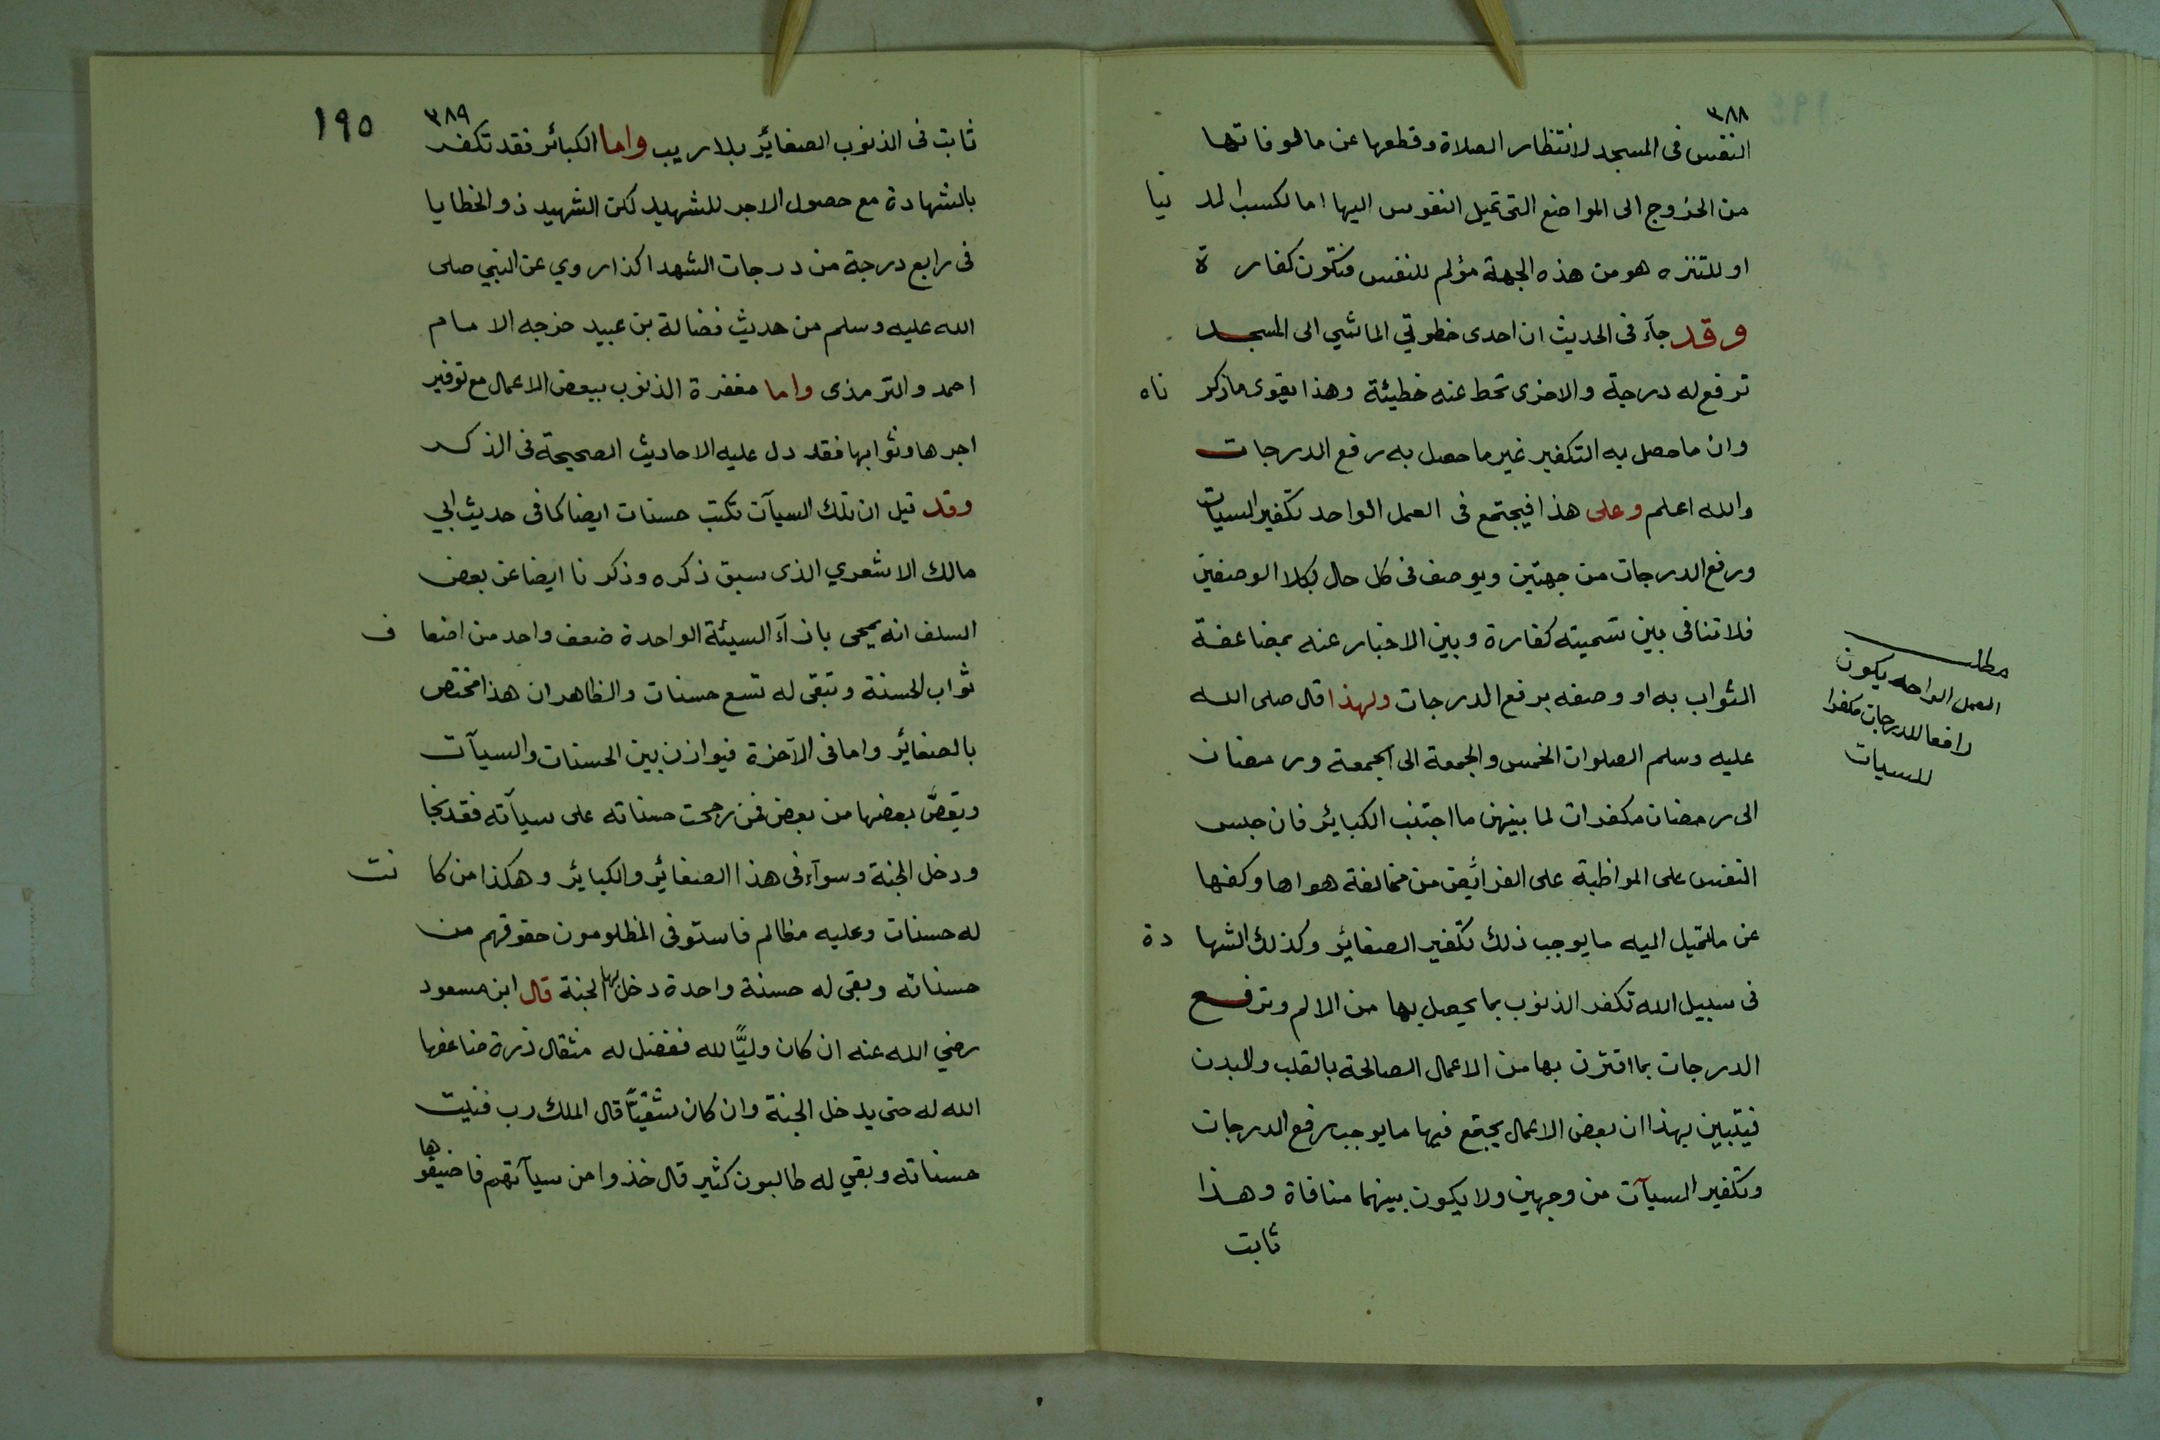 ٣٨٨
النفس فى المسجد لانتظار الصلاة وقطعها عن مالوفاتها
من الخروج الى المواضع التى تميل النفوس اليها اما لكسب الدنيا
او للتنزه هو من هذه الجهة مؤلم للنفس فتكون كفارة
وقد جآء فى الحديث ان احدى خطوتي الماشي الى المسجد
ترفع له درجة والاخرى تحط عنه خطيئة وهذا يقوى ما ذكرناه
وان ما حصل به التكفير غير ما حصل به رفع الدرجات
والله اعلم وعلى هذا فيجتمع فى العمل الواحد تكفير السيات
ورفع الدرجات من جهتين ويوصف فى كل حال بكلا الوصفين
فلا تنافى بين تسميته كفارة وبين الاخبار عنه بمضاعفة
الثواب به او وصفه برفع الدرجات ولهذا قال صلى الله
عليه وسلم الصلوات الخمس والجمعة الى الجمعة ورمضان
الى رمضان مكفرات لما بينهن ما اجتنب الكبائر فان حبس
النفس على المواظبة على الفرائض من مخالفة هواها وكفها
عن ما تميل اليه ما يوجب ذلك تكفير الصغائر وكذلك الشهادة
فى سبيل الله تكفر الذنوب بما يحصل بها من الالم وترفع
الدرجات بما اقترن بها من الاعمال الصالحة بالقلب والبدن
فيتبين بهذا ان بعض الاعمال يجتمع فيها ما يوجب رفع الدرجات
وتكفير السيآت من وجهين ولا يكون بينهما منافاة وهذا
ثابت
مطلب
العمل الواحد يكون
رافعا للدرجات مكفرا
للسيات
١٩٥
٣٨٩
ثابت فى الذنوب الصغائر بلا ريب واما الكبائر فقد تكفر
بالشهادة مع حصول الاجر للشهيد لكن الشهيد ذو الخطايا
فى رابع درجة من درجات الشهدا كذا روي عن النبي صلى
الله عليه وسلم من حديث فضالة بن عبيد خرجه الامام
احمد والترمذى واما مغفرة الذنوب ببعض الاعمال مع توفير
اجرها وثوابها فقد دل عليه الاحاديث الصحيحة فى الذكر
وقد قيل ان تلك السيآت تكتب حسنات ايضا كما فى حديث ابي
مالك الاشعري الذى سبق ذكره وذكرنا ايضا عن بعض
السلف انه يمحى بازآء السيئة الواحدة ضعف واحد من اضعاف
ثواب الحسنة وتبقى له تسع حسنات والظاهر ان هذا مختص
بالصغائر واما فى الآخرة فيوازن بين الحسنات والسيآت
ويقصّ بعضها من بعض فمن رجحت حسناته على سيآته فقد نجا
ودخل الجنة وسوآء فى هذا الصغائر والكبائر وهكذا من كانت
له حسنات وعليه مظالم فاستوفى المظلومون حقوقهم من
حسناته وبقى له حسنة واحدة دخل بها الجنة قال ابن مسعود
رضي الله عنه ان كان وليًّا لله ففضل له مثقال ذرة ضاعفها
الله له حتى يدخل الجنة وان كان شقيّا قال الملك رب فنيت
حسناته وبقي له طالبون كثير قال خذوا من سيآتهم فاضيفوها